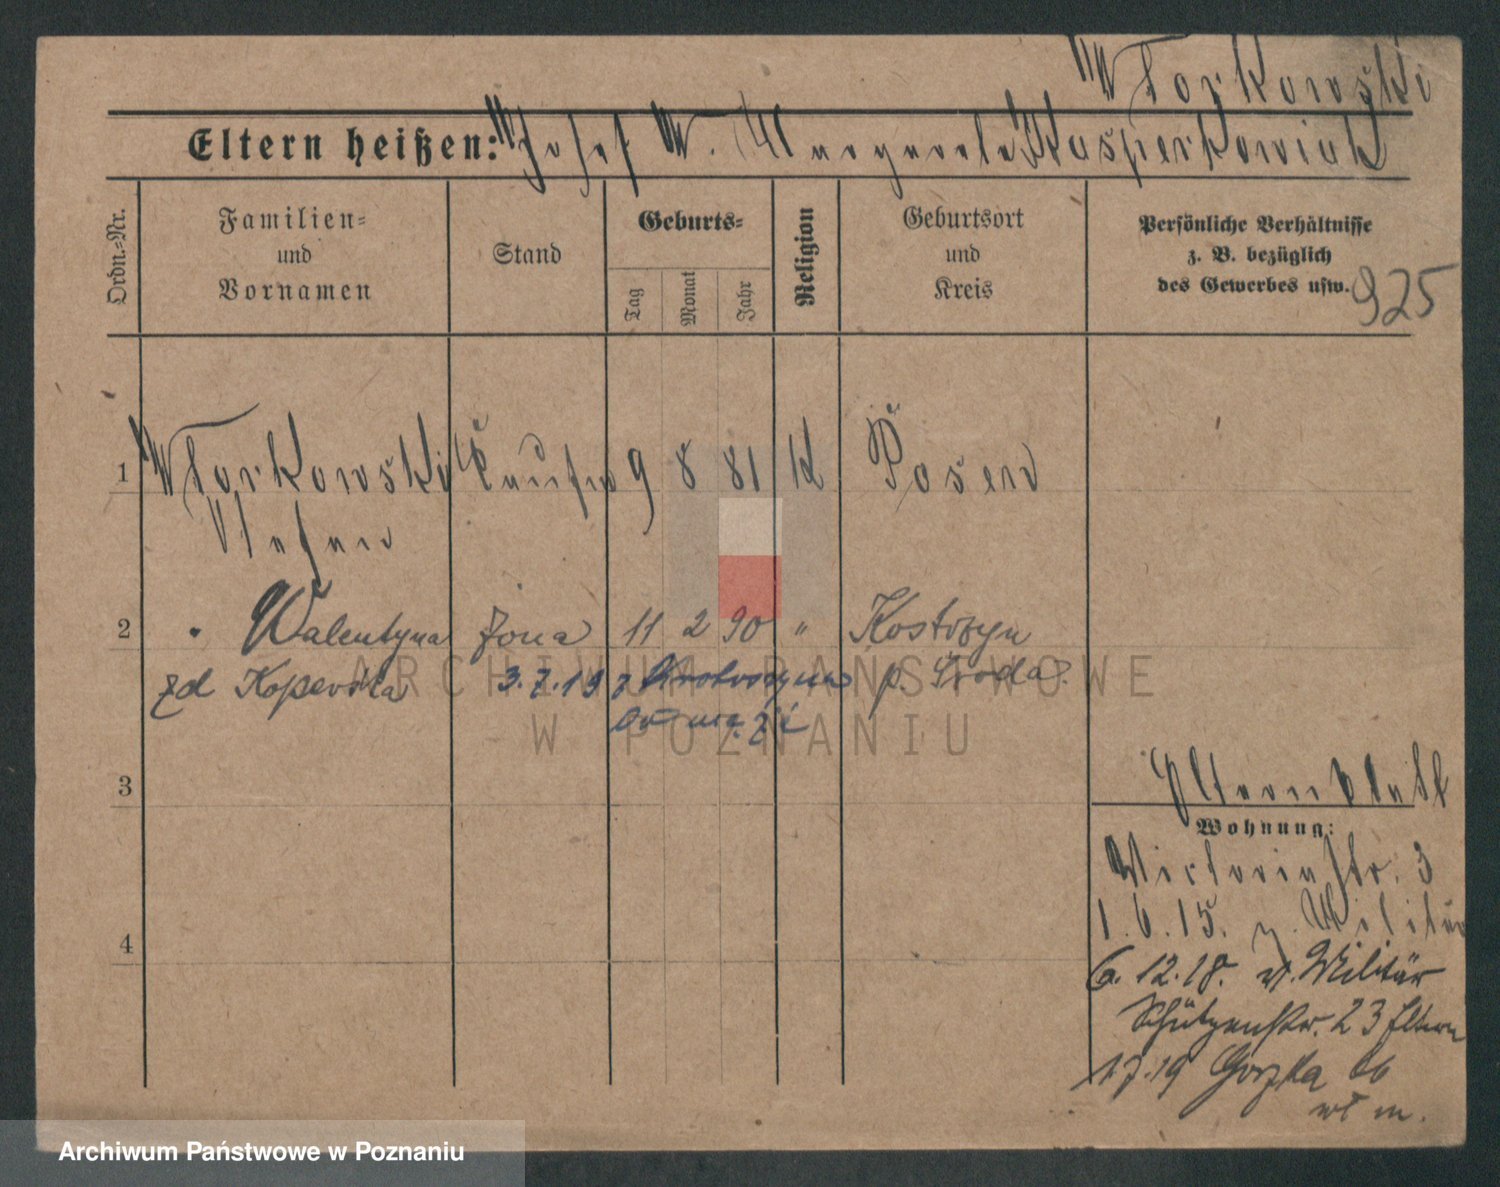 Wtorkowski
Eltern heißen: Josef W. Margarete Kasperkowiak
Ordn.-Nr.
Familien-
und
Vornamen
Stand
Geburts-
Tag
Monat
Jahr
Religion
Geburtsort
und
Kreis
Persönliche Verhältnisse
z. B. bezüglich
des Gewerbes usw.
925
1 Wtorkowski Kaufm 9 8 81 k Posen
Stefan
2 " Walentyna żona 11 2 90 " Kostrzyn
zd 3.7.19 z Krotoszyna p. Środa
3
Elternblatt
Wohnung:
Victoriastr. 3
1.6.15. z. Militär
4
6.12.18. v. Militär
Schützenstr. 23 Eltern
1.7.19 66
wł m.
ARCHIWUM PAŃSTWOWE
W POZNANIU
Archiwum Państwowe w Poznaniu